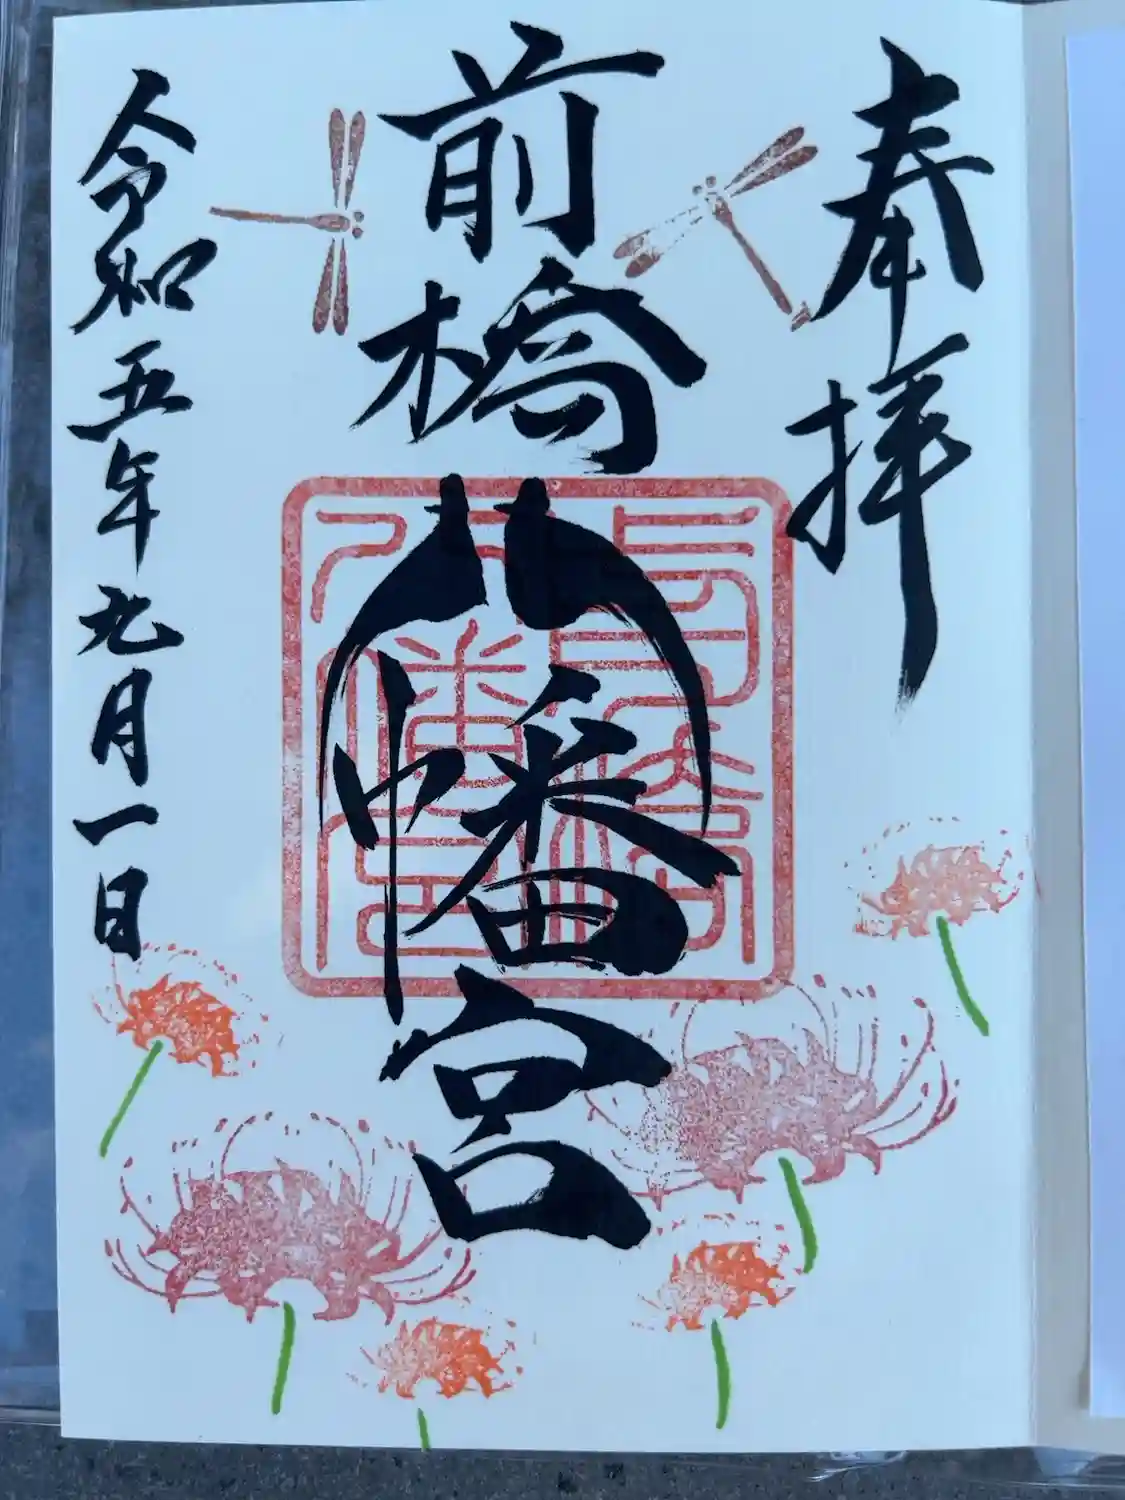 奉拝
前橋八幡宮
令和五年九月一日
前橋
八幡宮